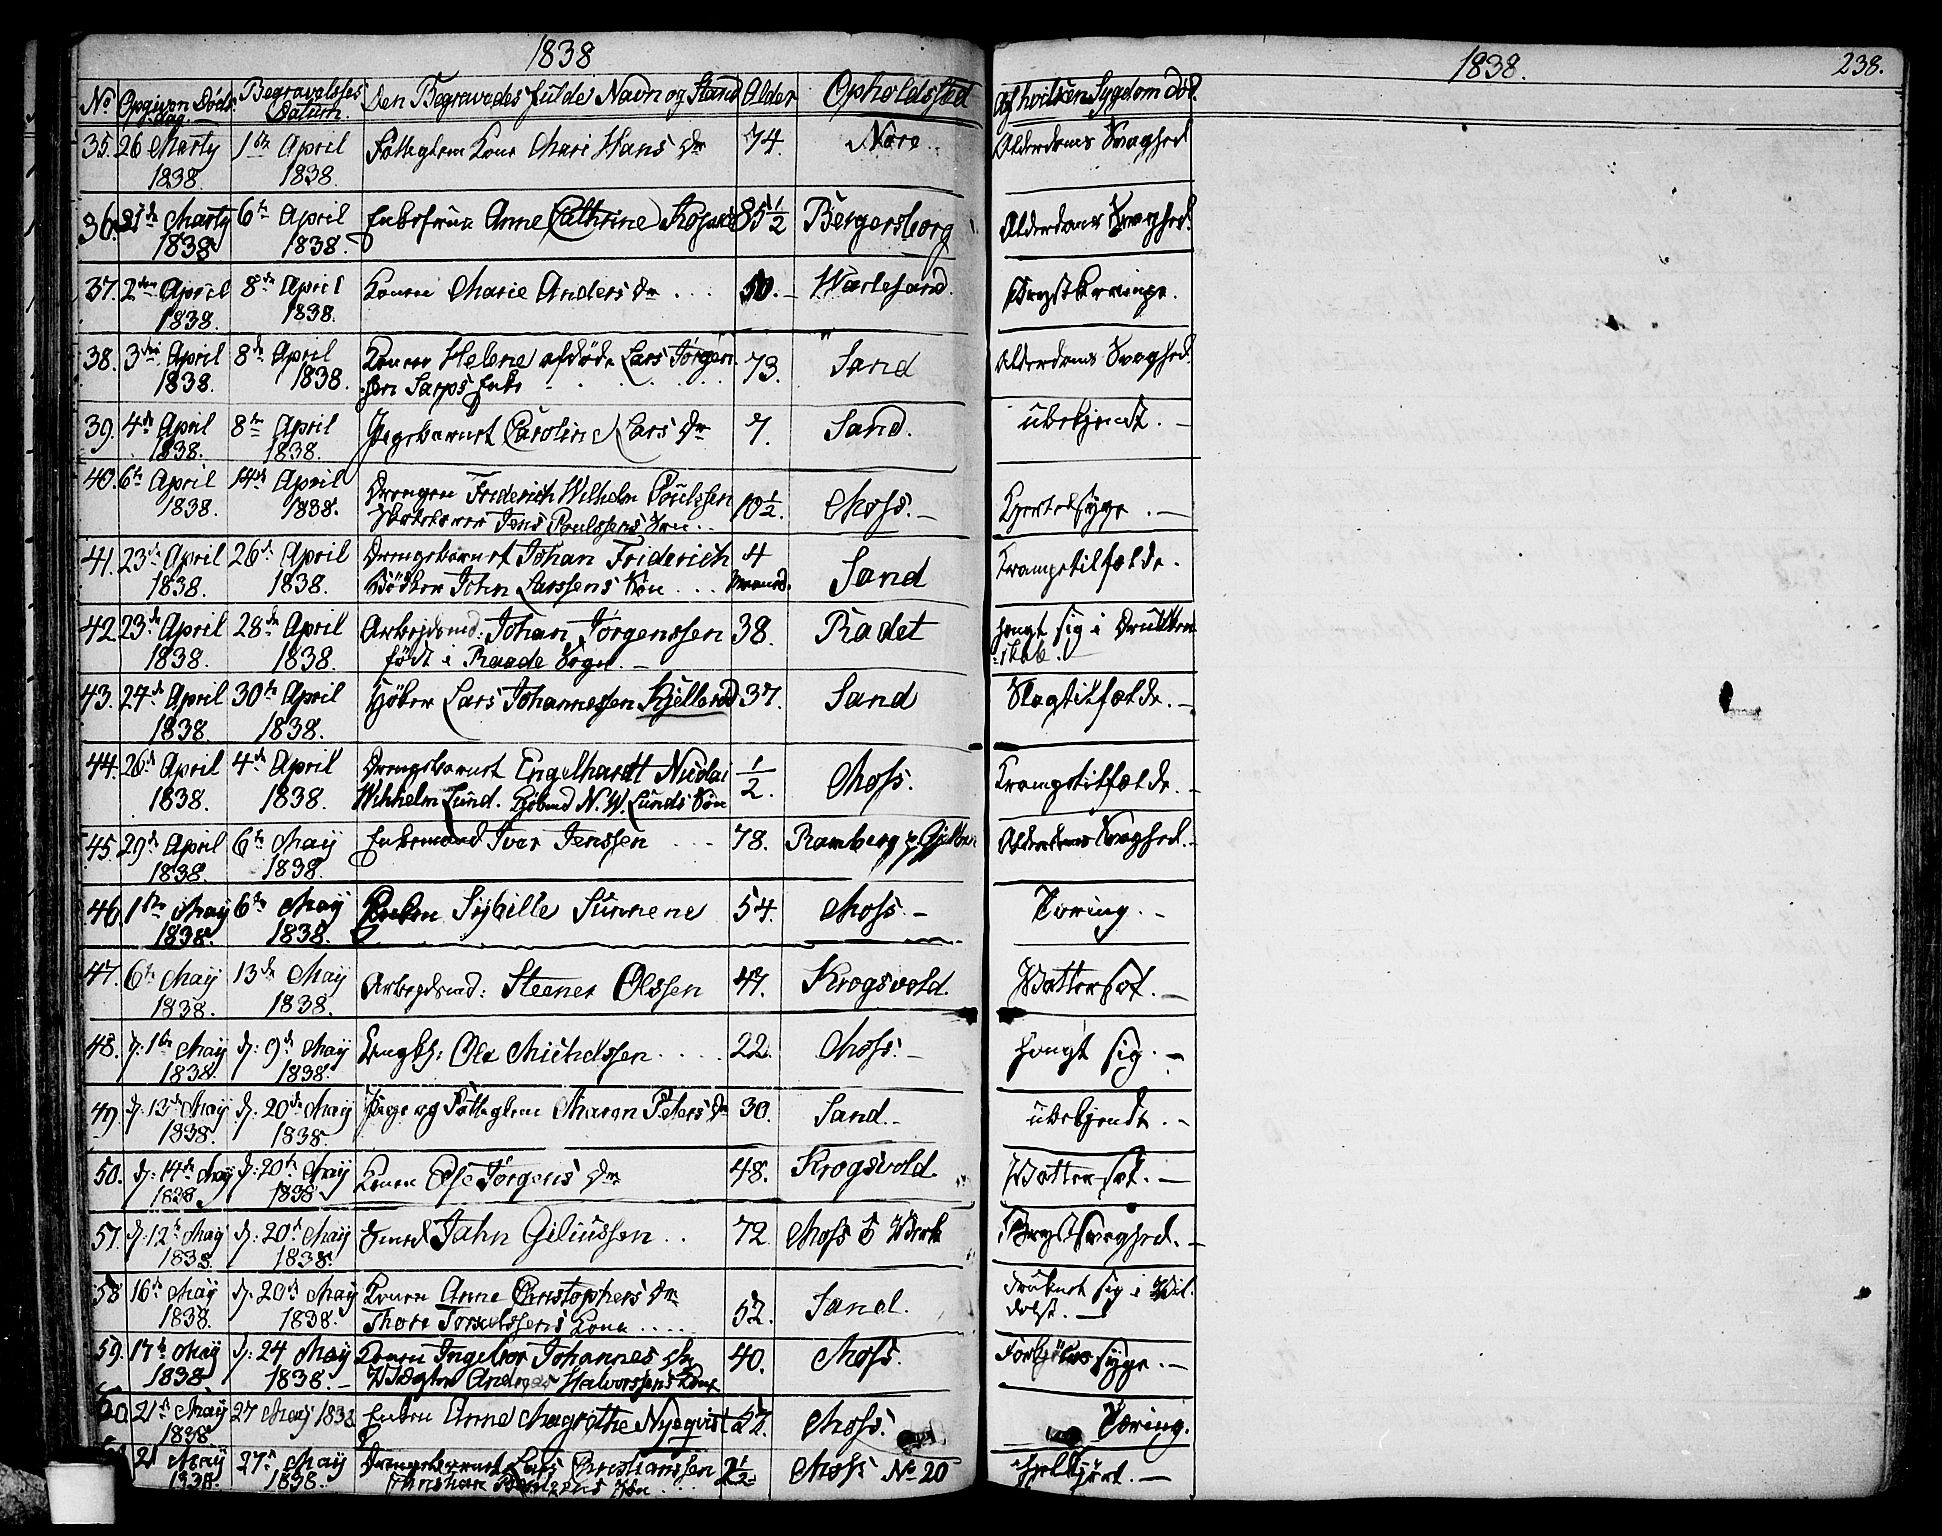 1838
1838.
238.
No Opgiven Døds Dag. Begravelses Datum. Den Begravedes fulde Navn og Stand Alder Opholdssted Af hvilken Sygdom død.
35. 26 Marty 1838. 1ste April 1838. Fattiglem Kone Mari Hans Dr 74. Nore. Alderdoms Svaghed
36. 31de Marty 1838 6te April 1838. Enkefrue Anne Cathrine 85 1/2 Bergersborg Alderdoms Svaghed.
37. 2den April 1838. 8de April 1838. Konen Marie Anders Dr 50. Warlesand. Brystkrampe.
38. 3die April 1838. 8de April 1838. Konen Helene afdøde Lars Jørgen
sen Sarps Enke 73. Sand Alderdoms Svaghed.
39. 4de April 1838. 8de April 1838. Pigebarnet Caroline Lars Dr 7. Sand. übekjendt.
40. 6te April 1838. 14de April 1838. Drengen Friderich Wilhelm Poulssen
Jens Poulssens Søn 10 1/2. Moss.
41. 23de April 1838. 26de April 1838. Drengebarnet Johan Friderich
Bødker John Larssens Søn 4 Maaned. Sand Krampetilfælde.
42. 23de April 1838. 28de April 1838. Arbejdsmd: Johan Jørgenssen
født i Raade Sogn. 38. Radet hengt sig i Drukken
skab.
43. 27de April 1838. 30te April 1838. Lars Johannessen Kjellerød 37. Sand Slagtilfælde.
44. 26de April 1838. 4de April 1838. Drengebarnet Engelhardt Nicolai
Wilhhelm Lund. Kjøbmd N. W. Lunds Søn 1/2. Moss. Krampetilfælde.
45. 29de April 1838. 6te Maÿ 1838. Enkemand Iver Jenssen 78. Ramberg Alderdoms Svaghed.
46. 1ste Maÿ 1838. 6te Maÿ 1838. Enken Sybille Sunnene 54. Moss. Tæring.
47. 6te Maÿ 1838. 13de Maÿ 1838. Arbejdsmd: Steener Olssen 47. Krogsvold. Wattersot.
48. d: 1ste Maÿ 1838. d: 9de Maÿ 1838. Ungk: Ole Michelssen 22. Moss. hengt sig.
49. d: 13de Maÿ 1838. d: 20de Maÿ 1838. Pige og Fattiglem Maren Peters Dr 30. Sand. übekjendt.
50. d: 14de Maÿ 1838 d: 20te Maÿ 1838. Konen Ose Jørgens Dr 48. Krogsvold. Wattersot.
57. d: 12te May 1838. d: 20de Maÿ 1838. Jahn Giliussen 72. Moss Werk Brystsvaghed.
58 16de Maÿ 1838. d: 20de Maÿ 1838. Konen Anne Christophers Dr
Thore Kone 52. Sand. druknet sig i Wil
delse.
59. 17de Maÿ 1838 d: 24 Maÿ 1838. Konen Ingebor Johannes Dr
Wægter Andreas Halvorssens Kone 40. Moss. Forkjølelses syge.
60. 21de Maÿ 1838 27 Maÿ 1838 Enken Anne Magrethe Nyeqvist 57. Moss. Tæring.
21 Maÿ 1838. 27de Maÿ 1838. Drengebarnet Lars Christianssen
Christian Søn 2 1/2 Moss No 20